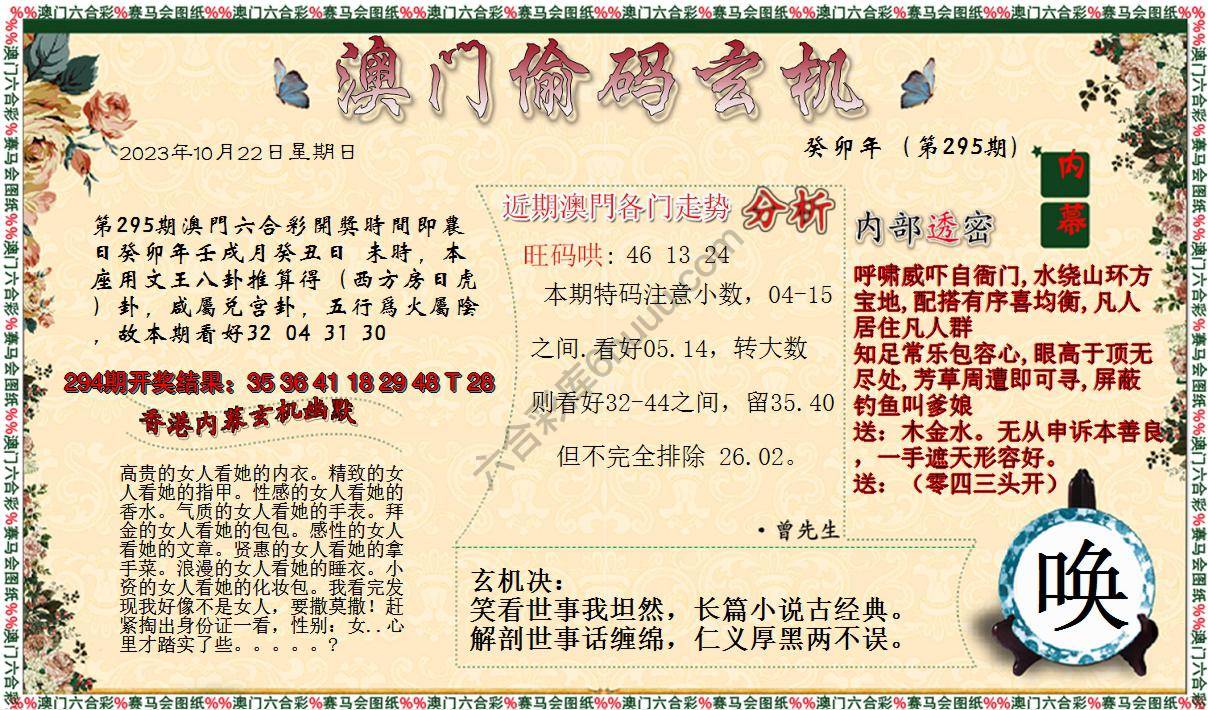 %%澳门六合彩%赛马会图纸%%澳门六合彩%赛马会图纸%%澳门六合彩%赛马会图纸%%澳门六合彩%赛马会图纸%%澳门六合彩%赛马会图纸%%澳门六合彩%赛马会图纸%%
澳门偷码玄机
2023年10月22日星期日
癸卯年（第295期）
内幕
第295期澳門六合彩開獎時間即農
日癸卯年壬戌月癸丑日 未時，本
座用文王八卦推算得（西方房日虎
）卦，咸屬兑宫卦，五行爲火屬陰
，故本期看好32 04 31 30
294期开奖结果：35 36 41 18 29 48 T 28
香港内幕玄机幽默
高贵的女人看她的内衣。精致的女
人看她的指甲。性感的女人看她的
香水。气质的女人看她的手表。拜
金的女人看她的包包。感性的女人
看她的文章。贤惠的女人看她的拿
手菜。浪漫的女人看她的睡衣。小
资的女人看她的化妆包。我看完发
现我好像不是女人，要撒莫撒！赶
紧掏出身份证一看，性别：女..心
里才踏实了些。。。。。?
近期澳門各门走势 分析
旺码哄: 46 13 24
本期特码注意小数，04-15
之间.看好05.14，转大数
则看好32-44之间，留35.40
但不完全排除 26.02。
·曾先生
六合彩库6huuu.com
内部透密
呼啸威吓自衙门,水绕山环方
宝地,配搭有序喜均衡,凡人
居住凡人群
知足常乐包容心,眼高于顶无
尽处,芳草周遭即可寻,屏蔽
钓鱼叫爹娘
送：木金水。无从申诉本善良
，一手遮天形容好。
送：（零四三头开）
玄机决：
笑看世事我坦然，长篇小说古经典。
解剖世事话缠绵，仁义厚黑两不误。
唤